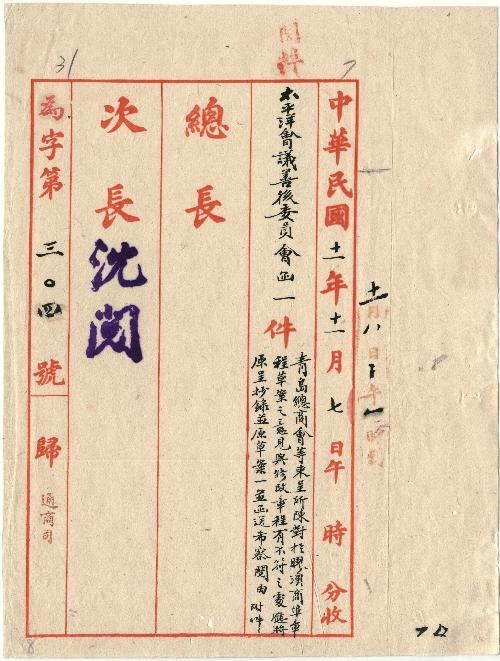 閱辦
31
中華民國十一年十一月七日午 時 分收
太平洋會議善後委員會函一件
青島總商會等東呈所陳對於膠澳商埠章
程草案之意見與修改章程有不符之處應將
原呈抄錄並原草案一並函送布察閱由 附件
總長
次長
沈閱
為字第三〇四號 歸
通商司
十一月八日下午